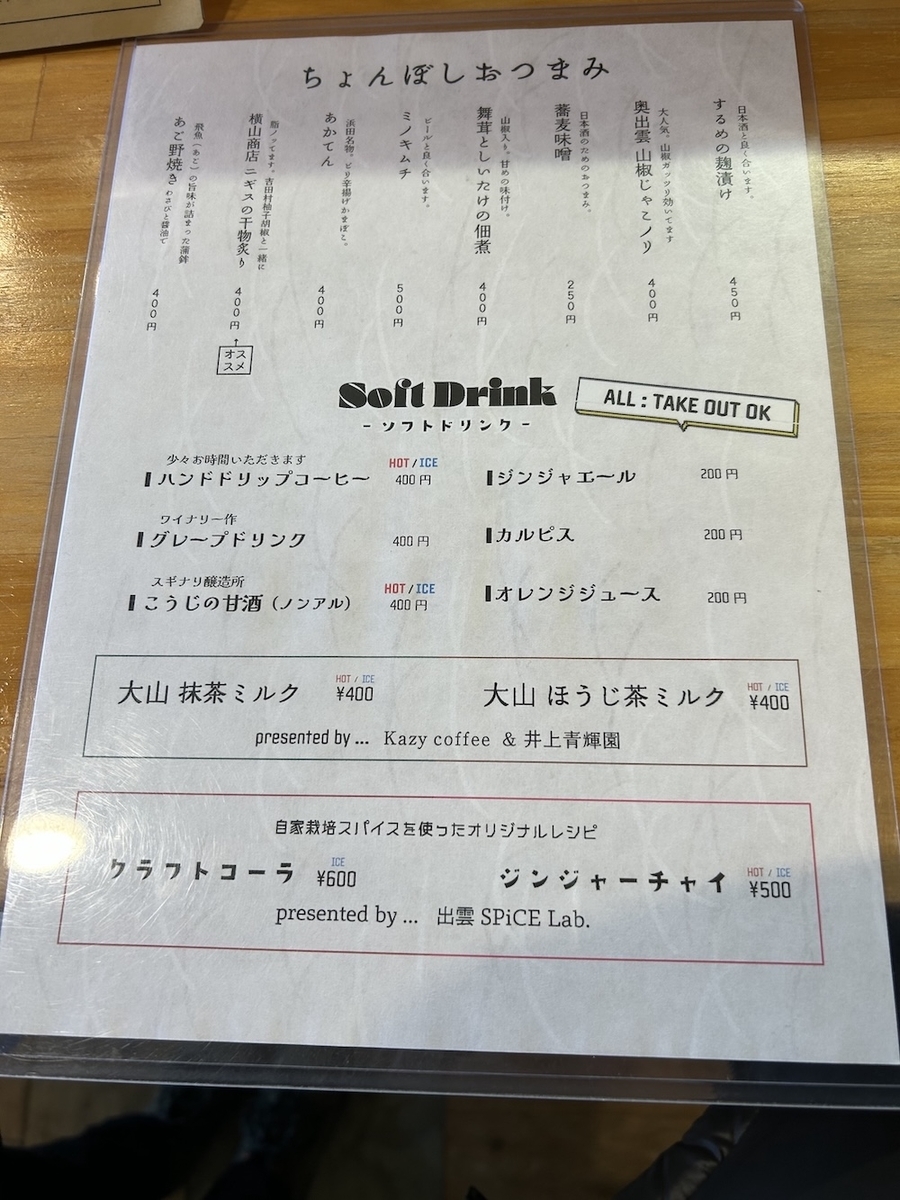 ちょんぼしおつまみ
日本酒と良く合います。
するめの麹漬け
450円
大人気。山椒ガッツリ効いてます
奥出雲 山椒じゃこノリ
400円
日本酒のためのおつまみ。
蕎麦味噌
250円
山椒入り。甘めの味付け。
舞茸としいたけの佃煮
400円
ビールと良く合います。
ミノキムチ
500円
浜田名物。ピリ辛揚げかまぼこ。
あかてん
400円
脂ノッてます。吉田村柚子胡椒と一緒に
横山商店 ニギスの干物炙り
400円
↑
オススメ
飛魚(あご)の旨味が詰まった蒲鉾
あご野焼き わさびと醤油で
400円
Soft Drink
- ソフトドリンク -
ALL : TAKE OUT OK
少々お時間いただきます
ハンドドリップコーヒー HOT / ICE 400 円
ワイナリー作
グレープドリンク 400 円
スギナリ醸造所
こうじの甘酒 (ノンアル) HOT / ICE 400 円
ジンジャエール 200 円
カルピス 200 円
オレンジジュース 200 円
大山 抹茶ミルク HOT / ICE ¥400
大山 ほうじ茶ミルク HOT / ICE ¥400
presented by ... Kazy coffee & 井上青輝園
自家栽培スパイスを使ったオリジナルレシピ
クラフトコーラ ICE ¥600
ジンジャーチャイ HOT / ICE ¥500
presented by ... 出雲 SPiCE Lab.